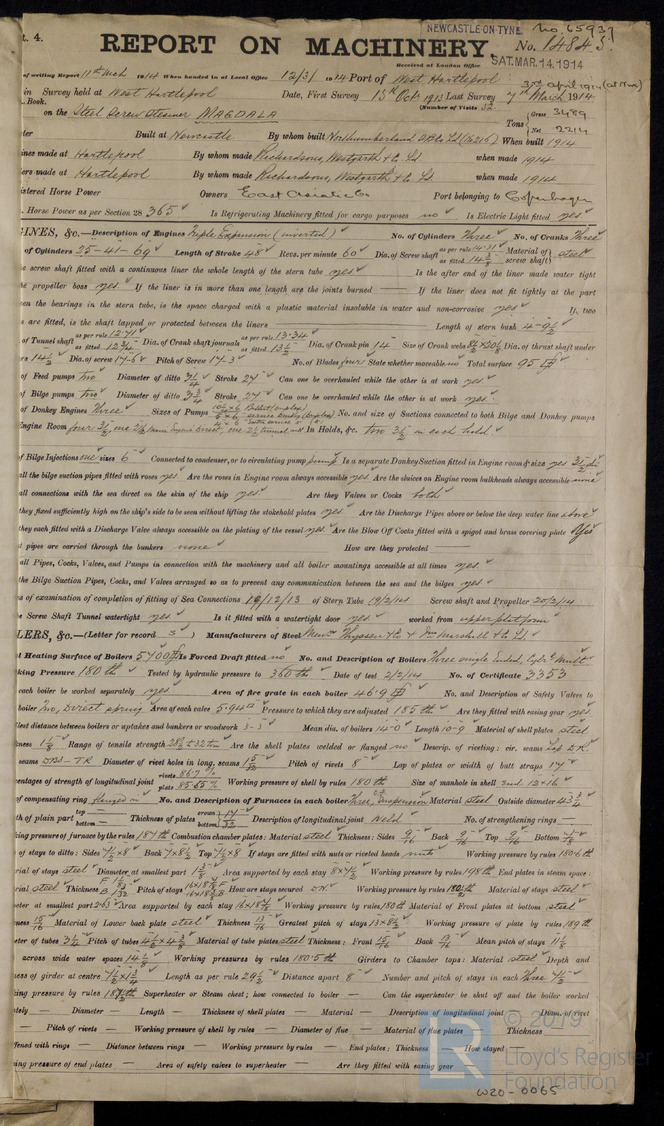 NEWCASTLE-ON-TYNE No. 65937
t. 4.
REPORT ON MACHINERY. No. 14845.
Received at London Office SAT. MAR. 14. 1914
of writing Report 11th Mch 1914 When handed in at Local Office 12/3/ 1914 Port of West Hartlepool
3rd April 1914
in Survey held at West Hartlepool Date, First Survey 15th Oct 1913 Last Survey 7th March 1914
Book. (Number of Visits 32
on the Steel Screw Steamer MAGDALA Tons { Gross 3489
Net 2214
Built at Newcastle By whom built Northumberland When built 1914
ines made at Hartlepool By whom made Richardsons, Westgarth & Co Ld when made 1914
ers made at Hartlepool By whom made Richardsons, Westgarth & Co Ld when made 1914
istered Horse Power Owners East Asiatic Co Port belonging to Copenhagen
. Horse Power as per Section 28 365 Is Refrigerating Machinery fitted for cargo purposes no Is Electric Light fitted yes
GINES, &c.—Description of Engines Triple Expansion (inverted) No. of Cylinders Three No. of Cranks Three
of Cylinders 25-41-69 Length of Stroke 48 Revs. per minute 60 Dia. of Screw shaft as per rule 14.31 as fitted 14 3/8 Material of screw shaft} steel
he screw shaft fitted with a continuous liner the whole length of the stern tube yes Is the after end of the liner made water tight
he propeller boss yes If the liner is in more than one length are the joints burned — If the liner does not fit tightly at the part
een the bearings in the stern tube, is the space charged with a plastic material insoluble in water and non-corrosive yes If, two
s are fitted, is the shaft lapped or protected between the liners — Length of stern bush 4-9 1/2
of Tunnel shaft as per rule 12.71 as fitted 12 3/4 Dia. of Crank shaft journals as per rule 13.34 as fitted 13 1/2 Dia. of Crank pin 14 Size of Crank webs Dia. of thrust shaft under
rs 14 1/2 Dia. of screw 17-6 Pitch of Screw 17-3 No. of Blades four State whether moveable no Total surface 95
of Feed pumps two Diameter of ditto 3 1/4 Stroke 27 Can one be overhauled while the other is at work yes
of Bilge pumps two Diameter of ditto 3 3/4 Stroke 27 Can one be overhauled while the other is at work yes
of Donkey Engines Three Sizes of Pumps No. and size of Suctions connected to both Bilge and Donkey pumps
Engine Room four 3 1/2, one 2 1/2 In Holds, &c. two 3 1/2 in each hold
of Bilge Injections one sizes 6 Connected to condenser, or to circulating pump pump Is a separate Donkey Suction fitted in Engine room & size yes 3 1/2
all the bilge suction pipes fitted with roses yes Are the roses in Engine room always accessible yes Are the sluices on Engine room bulkheads always accessible none
all connections with the sea direct on the skin of the ship yes Are they Valves or Cocks both
they fixed sufficiently high on the ship's side to be seen without lifting the stokehold plates yes Are the Discharge Pipes above or below the deep water line above
they each fitted with a Discharge Valve always accessible on the plating of the vessel yes Are the Blow Off Cocks fitted with a spigot and brass covering plate Yes
t pipes are carried through the bunkers none How are they protected —
all Pipes, Cocks, Valves, and Pumps in connection with the machinery and all boiler mountings accessible at all times yes
the Bilge Suction Pipes, Cocks, and Valves arranged so as to prevent any communication between the sea and the bilges yes
es of examination of completion of fitting of Sea Connections 19/12/13 of Stern Tube 19/2/14 Screw shaft and Propeller 20/2/14
he Screw Shaft Tunnel watertight yes Is it fitted with a watertight door yes worked from upper platform
LERS, &c.—(Letter for record S) Manufacturers of Steel Thyssen & Co & Ld
l Heating Surface of Boilers 5700 Is Forced Draft fitted no No. and Description of Boilers Three single Ended,
king Pressure 180 lb Tested by hydraulic pressure to 360 lb Date of test 2/2/14 No. of Certificate 3353
each boiler be worked separately yes Area of fire grate in each boiler 46.9 No. and Description of Safety Valves to
boiler Two, Direct spring Area of each valve 5.94 Pressure to which they are adjusted 185 lb Are they fitted with easing gear yes
llest distance between boilers or uptakes and bunkers or woodwork 3-3 Mean dia. of boilers 14-0 Length 10-9 Material of shell plates steel
kness 1 1/8 Range of tensile strength 28 1/2 to 32 tons Are the shell plates welded or flanged no Descrip. of riveting: cir. seams Lap D.R.
seams DBS-TR Diameter of rivet holes in long. seams 1 5/32 Pitch of rivets 8 Lap of plates or width of butt straps 17
entages of strength of longitudinal joint rivets 86.7 % plate 85.65 % Working pressure of shell by rules 180 lb Size of manhole in shell end 12×16
of compensating ring flanged in No. and Description of Furnaces in each boiler Three, Suspension Material steel Outside diameter 43 3/4
th of plain part top — bottom — Thickness of plates crown bottom} 17/32 Description of longitudinal joint Weld No. of strengthening rings —
king pressure of furnace by the rules 187 lb Combustion chamber plates: Material steel Thickness: Sides 9/16 Back 9/16 Top 9/16 Bottom
of stays to ditto: Sides 7 1/2×8 Back 7×8 1/2 Top 7 1/2×8 If stays are fitted with nuts or riveted heads nuts Working pressure by rules 180.6 lb
rial of stays steel Diameter at smallest part 1 3/8 Area supported by each stay 8×7 1/2 Working pressure by rules 198 lb End plates in steam space:
rial steel Thickness Pitch of stays How are stays secured DN Working pressure by rules 180 1/2 lb Material of stays steel
eter at smallest part 2.63 Area supported by each stay Working pressure by rules 180 lb Material of Front plates at bottom steel
ness 15/16 Material of Lower back plate steel Thickness 13/16 Greatest pitch of stays 13×8 1/2 Working pressure of plate by rules 189 lb
eter of tubes 3 1/2 Pitch of tubes 4 1/2×4 3/8 Material of tube plates steel Thickness: Front 15/16 Back 9/16 Mean pitch of stays 11 1/8
across wide water spaces 14 1/2 Working pressures by rules 180.5 lb Girders to Chamber tops: Material steel Depth and
ess of girder at centre Length as per rule 29 1/2 Distance apart 8 Number and pitch of stays in each Three 7 1/2
king pressure by rules Superheater or Steam chest; how connected to boiler — Can the superheater be shut off and the boiler worked
ately — Diameter — Length — Thickness of shell plates — Material — Description of longitudinal joint — Diam. of rivet
— Pitch of rivets — Working pressure of shell by rules — Diameter of flue — Material of flue plates Thickness
ffened with rings — Distance between rings — Working pressure by rules — End plates: Thickness How stayed
ing pressure of end plates — Area of safety valves to superheater — Are they fitted with easing gear
© 2019
Lloyd's Register
Foundation
W20-0065